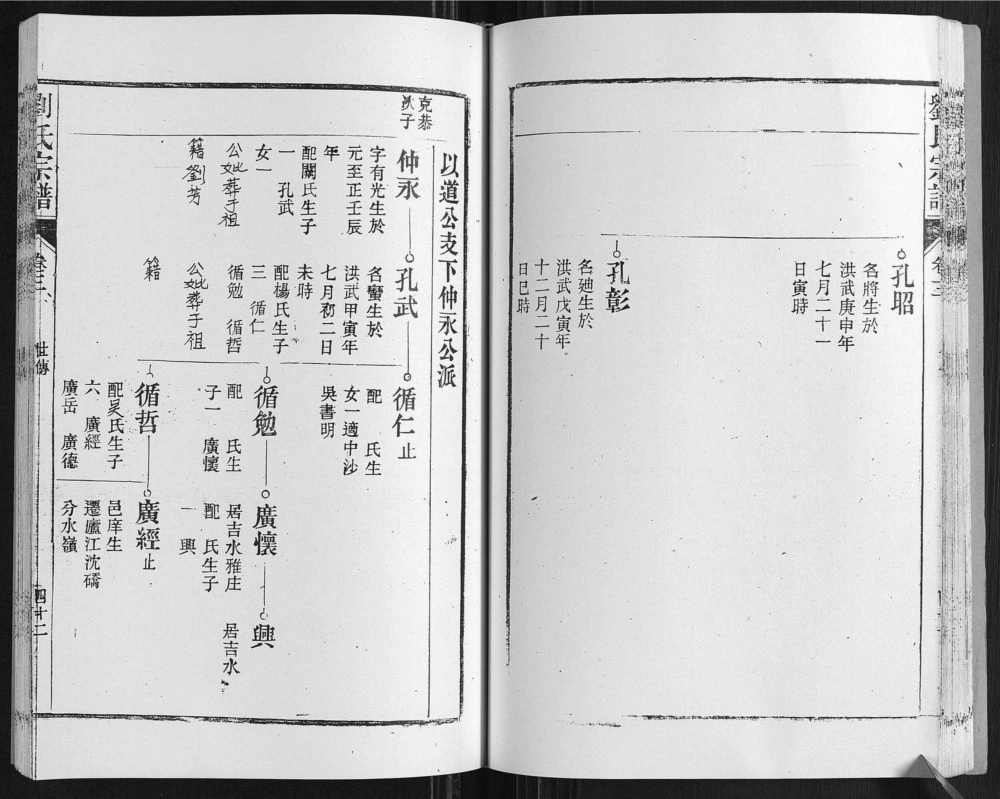 孔昭
名將生於
洪武庚申年
七月二十一
日寅時
孔彰
名廸生於
洪武戊寅年
十二月二十
日巳時
以道公支下仲永公派
克恭
次子
仲永
字有光生於
元至正壬辰
年
配關氏生子
一 孔武
女一
公妣葬于祖
籍劉芳
孔武
名蠻生於
洪武甲寅年
七月初二日
未時
配楊氏生子
三 循仁
循勉 循哲
公妣葬于祖
籍
循仁止
配 氏生
女一適中沙
吳書明
循勉
配 氏生
子一 廣懷
廣懷
居吉水雅庄
配 氏生子
一 興
興
居吉水
循哲
配吳氏生子
六 廣經
廣岳 廣德
廣經止
邑庠生
遷廬江沈礄
分水嶺
劉氏宗譜
卷三
世傳
四十二
劉氏宗譜
卷三